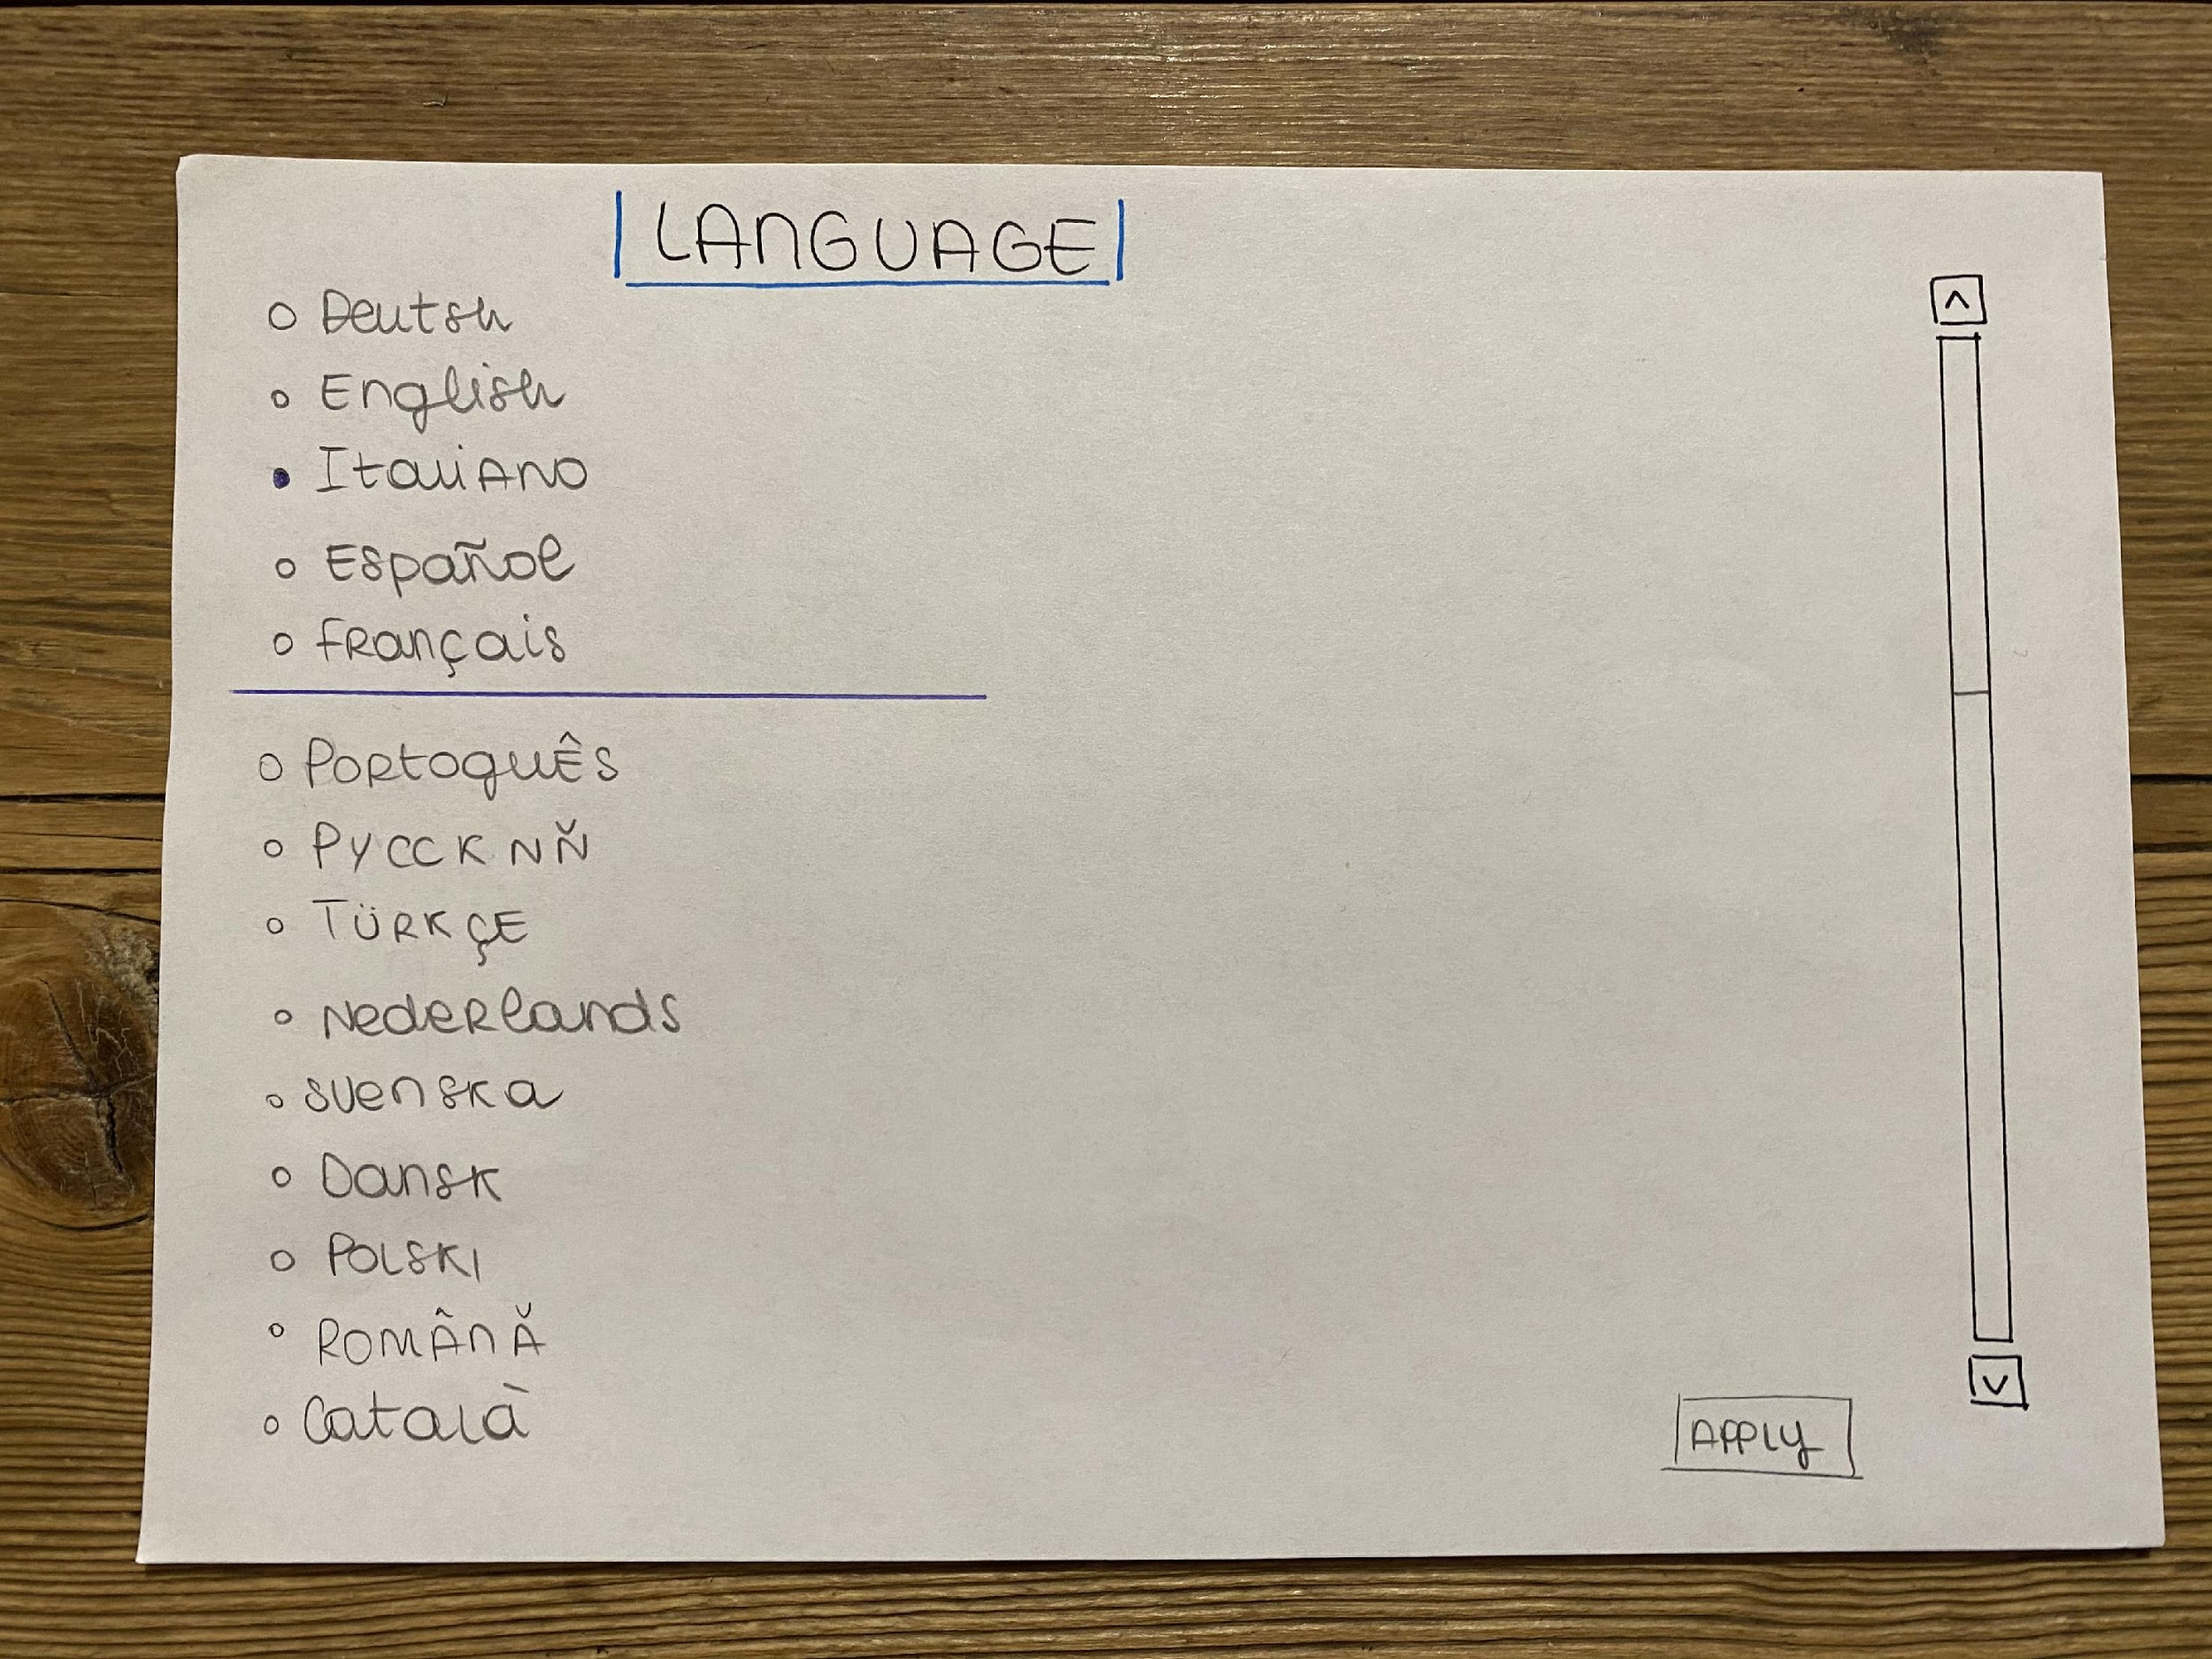 LANGUAGE
Deutsh
English
Italiano
Español
Français
Portoguês
Pycck NŇ
TÜRKÇE
Nederlands
Svenska
Dansk
POLSKI
ROMÂNĂ
Català
APPLY